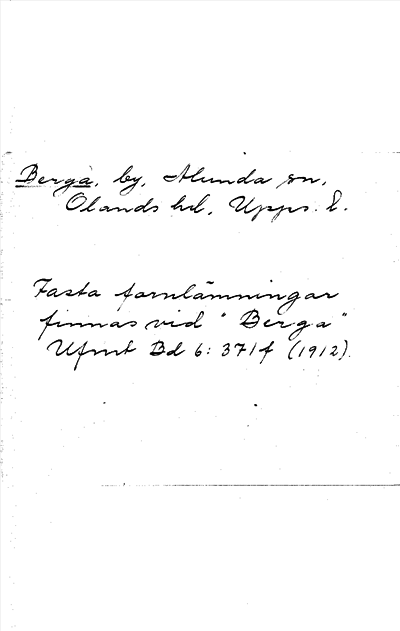 Berga, by, Alunda sn,
Olands hd, Upps. l.
Fasta fornlämningar
finnas vid "Berga"
Ufmt Bd 6: 371f (1912).